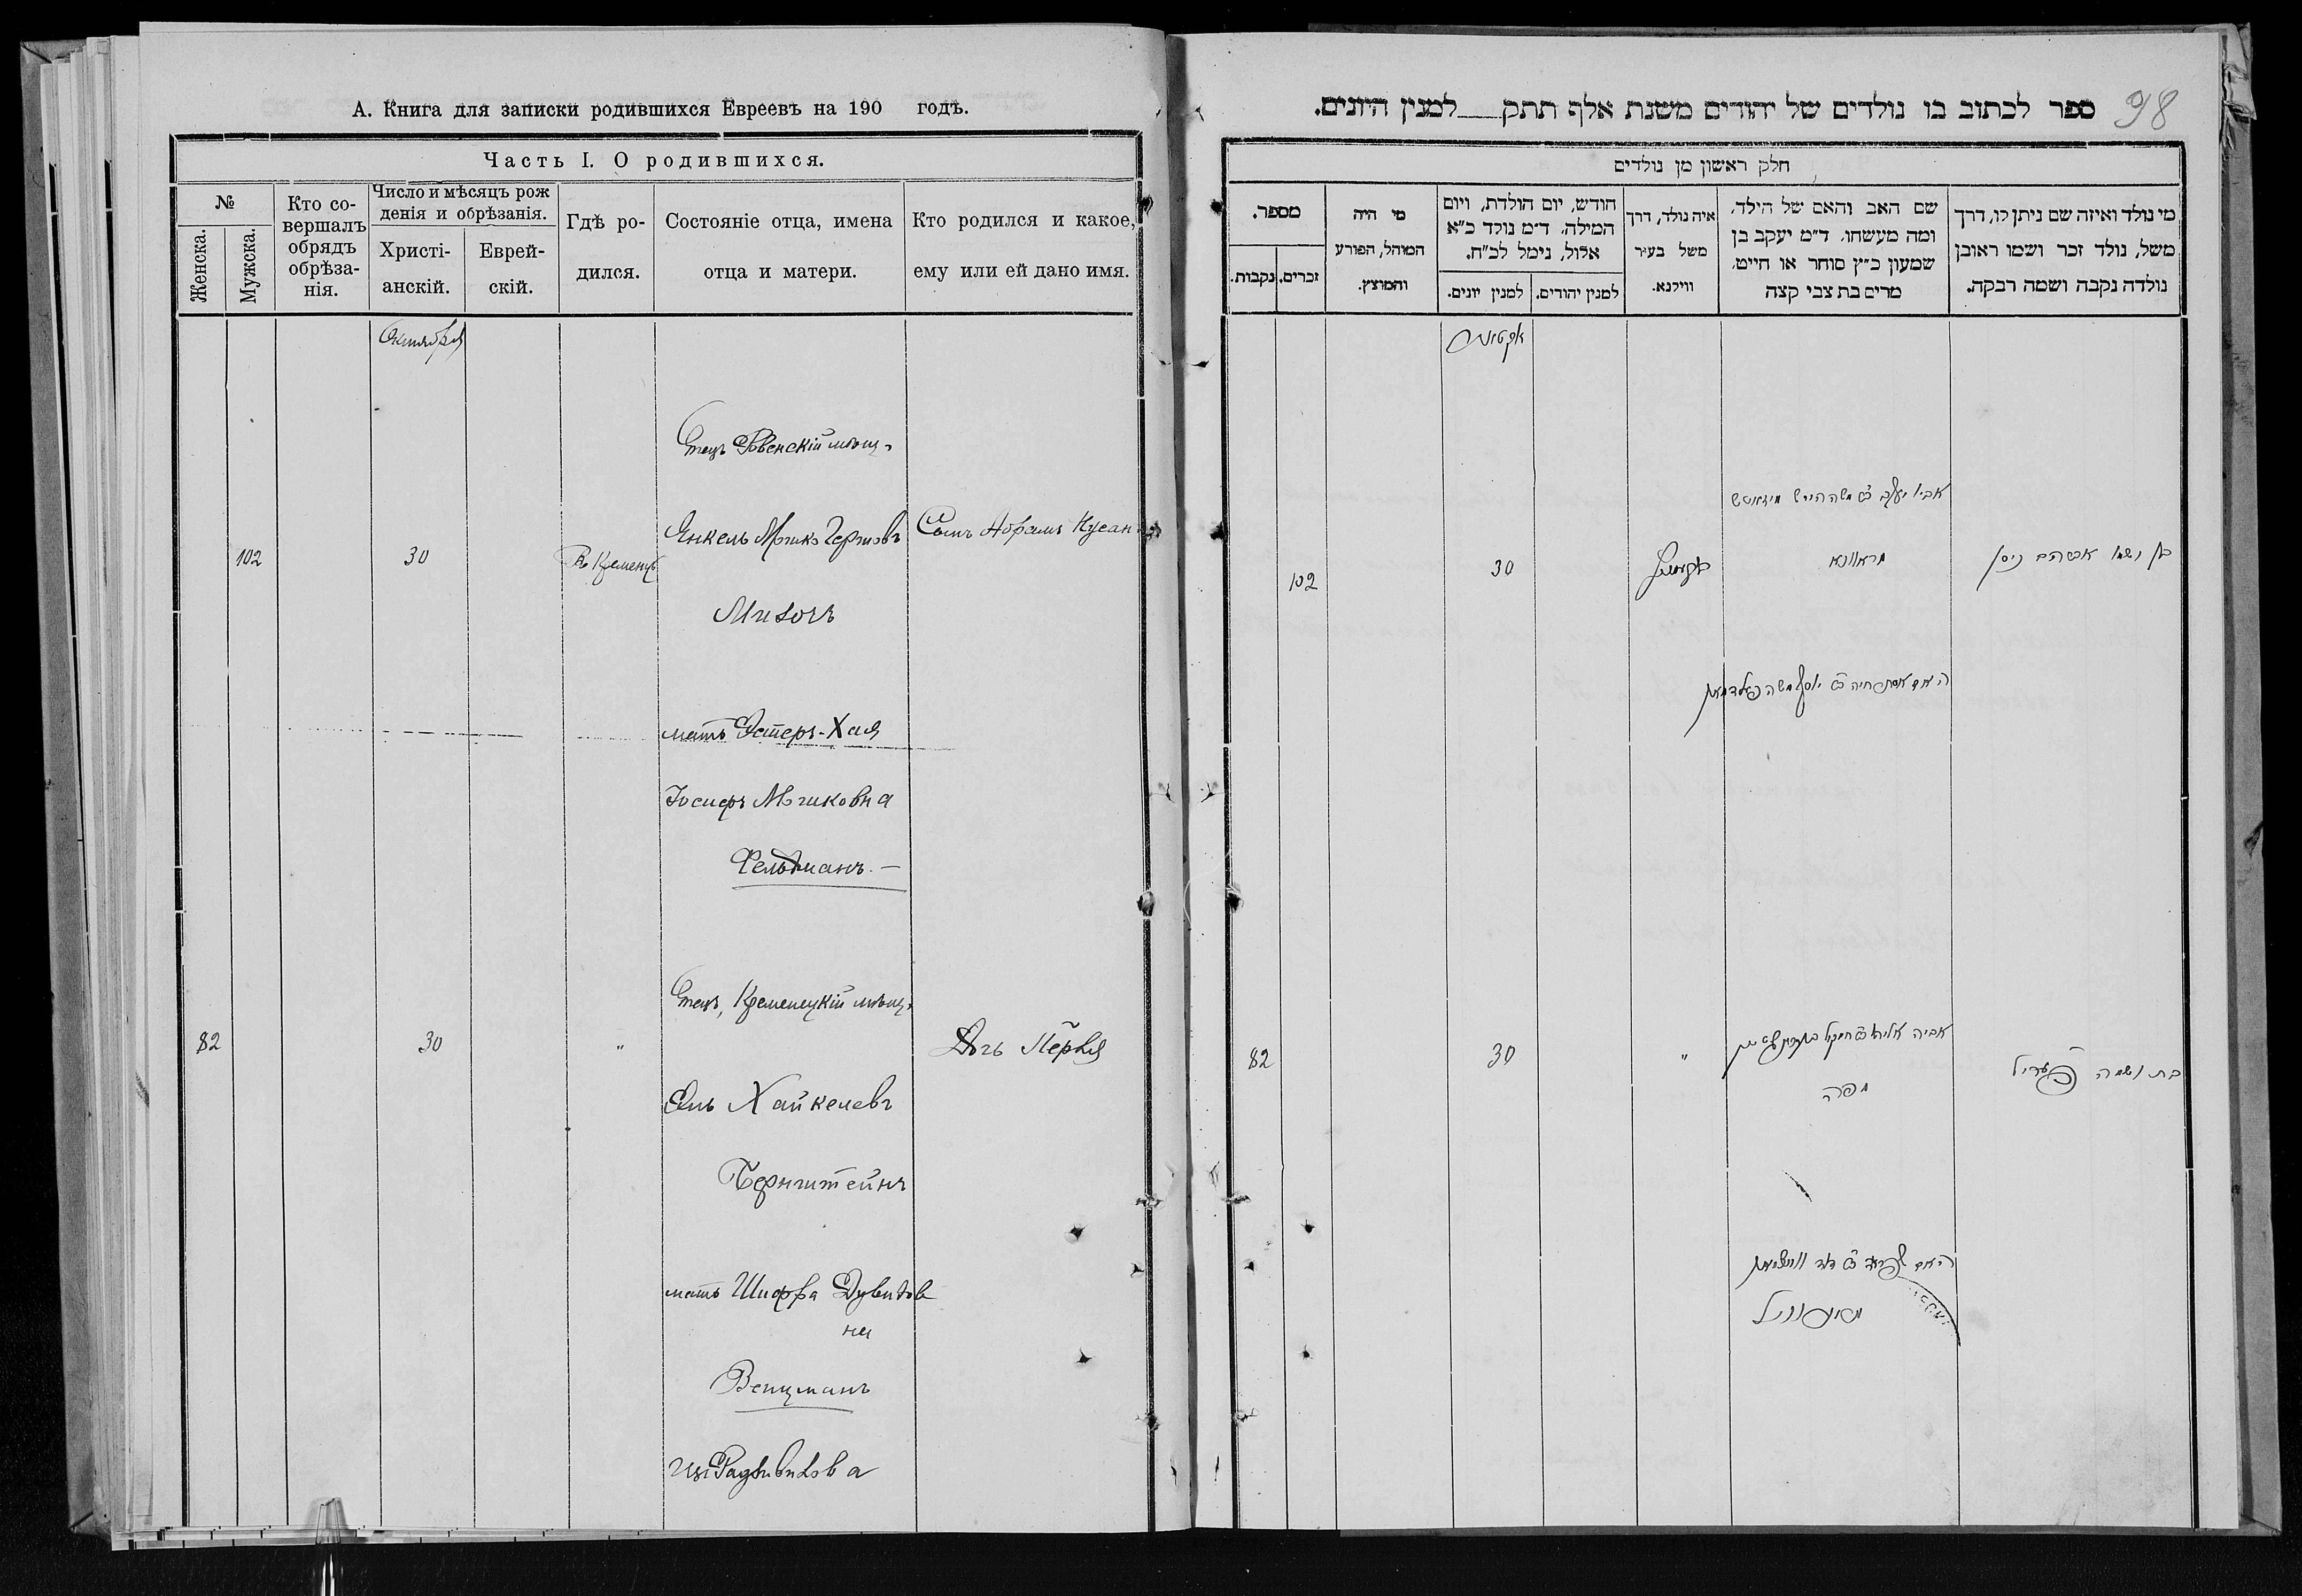 А. Книга для записки родившихся Евреевъ на 190 годъ.
Часть I. О родившихся.
№
Женска.
Мужска.
Кто со-
вершалъ
обрядъ
обрѣза-
нія.
Число и мѣсяцъ рож
денія и обрѣзанія.
Христі-
анскій.
Еврей-
скій.
Гдѣ ро-
дился.
Состояніе отца, имена
отца и матери.
Кто родился и какое,
ему или ей дано имя.
Октября
Отецъ Ровенскій мѣщ.
Янкель Мошко Гершовъ
Сынъ Абрамъ Нусанъ
102
30
Въ Кременцѣ
Мизочъ
мать Эстеръ-Хая
Іосифъ Мошковна
Фельдманъ. —
Отецъ, Кременецкій мѣщ.
82
30
"
Дочь Перля
Эль Хайкелевъ
Бернштейнъ
мать Шифра Дувидов
на
Вейцманъ
изъ Радзивилова
98
ספר לכתוב בו נולדים של יהודים משנת אלף תתק למנין היונים.
חלק ראשון מן נולדים
מספר.
נקבות.
זכרים.
מי היה
המוהל, הפורע
והמוצץ.
חודש, יום הולדת, ויום
המילה. ד"מ נולד כ"א
אלול, נימל לכ"ח.
למנין יונים.
למנין יהודים.
איה נולד, דרך
משל בעיר
ווילנא.
שם האב והאם של הילד,
ומה מעשהו. ד"מ יעקב בן
שמעון כ"ץ סוחר או חייט,
מרים בת צבי קצה
מי נולד ואיזה שם ניתן לו, דרך
משל, נולד זכר ושמו ראובן
נולדה נקבה ושמה רבקה.
אביו יעקב ב"ר משה הירש
102
30
בן ושמו אברהם ניסן
מראוונא
האם אסתר חיה ב"ר יוסף משה פעלדמאן
82
30
"
בת ושמה פעריל
מפה